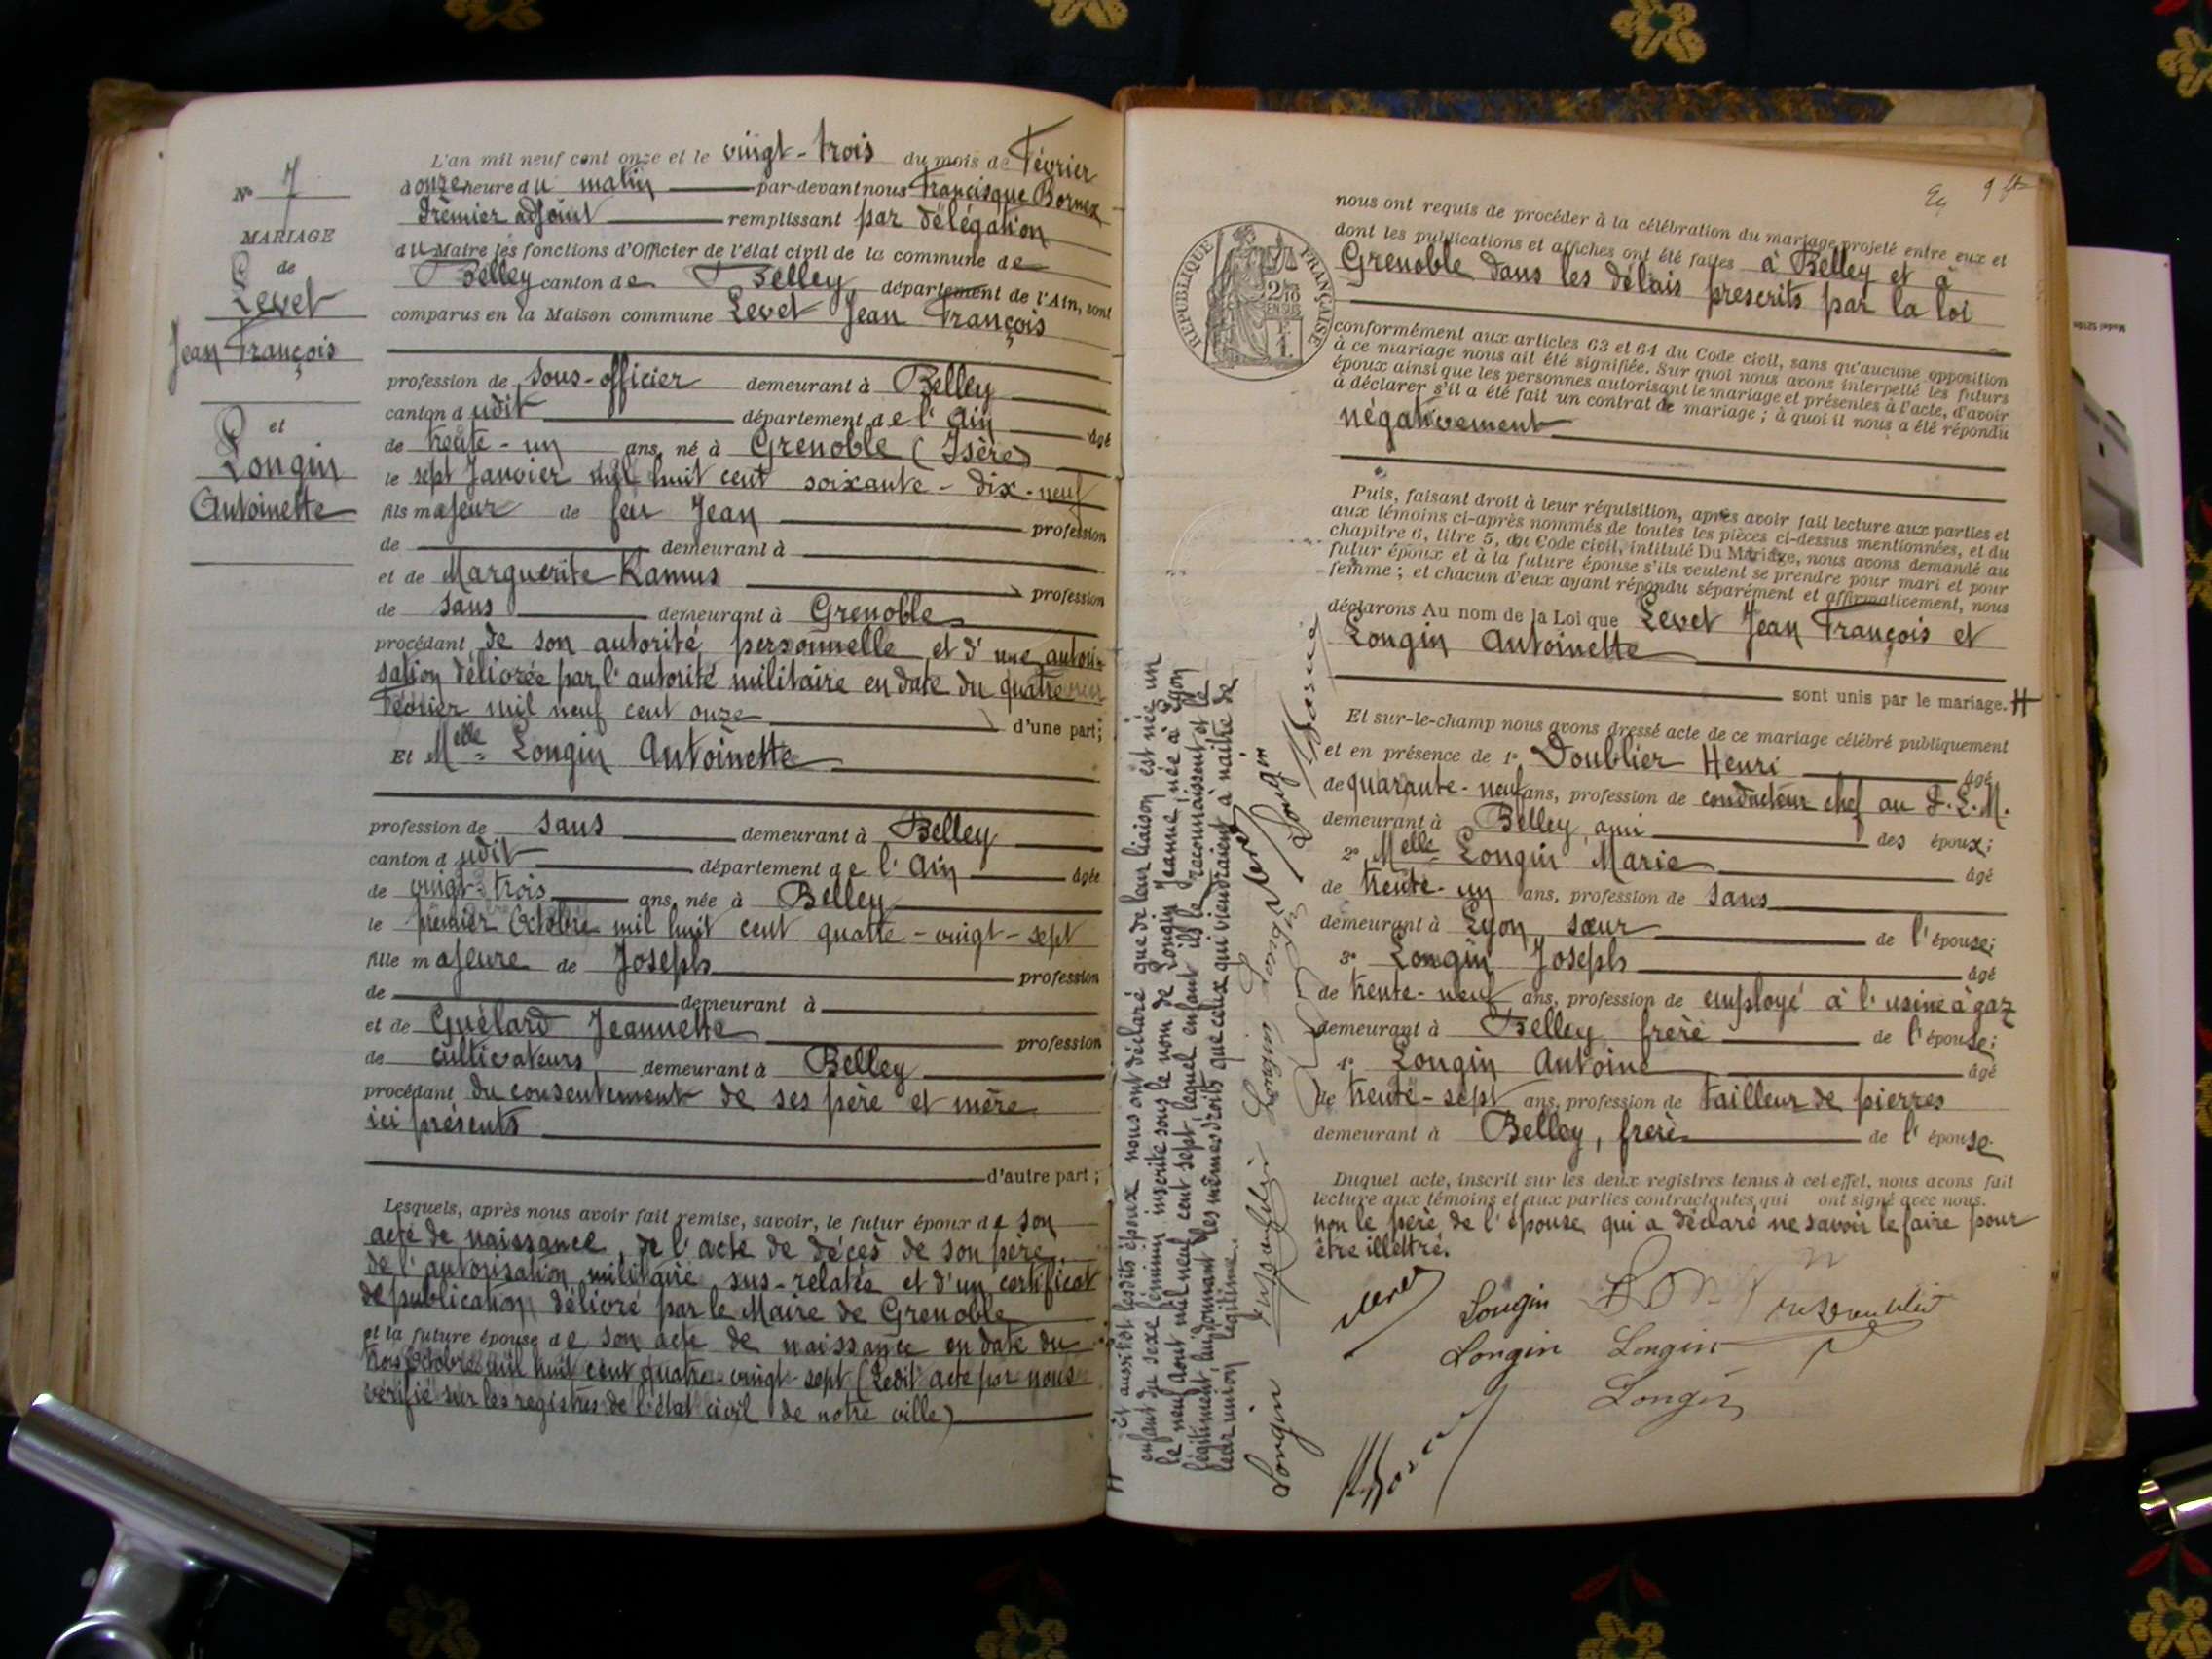 N° 7
MARIAGE
de
Levet
Jean François
et
Longin
Antoinette
L'an mil neuf cent onze et le vingt-trois du mois de Février
à onze heure du matin par-devant nous Francisque Bornex
Premier adjoint remplissant par délégation
du Maire les fonctions d'Officier de l'état civil de la commune de
Belley canton de Belley, département de l'Ain, sont
comparus en la Maison commune Levet Jean François
profession de sous-officier demeurant à Belley
canton dudit département de l'Ain âgé
de trente-un ans, né à Grenoble (Isère)
le sept Janvier mil huit cent soixante-dix-neuf
fils majeur de feu Jean profession
de demeurant à
et de Marguerite Ramus profession
de sans demeurant à Grenoble
procédant de son autorité personnelle et d'une autori-
sation délivrée par l'autorité militaire en date du quatre
Février mil neuf cent onze d'une part;
Et Melle Longin Antoinette
profession de sans demeurant à Belley
canton dudit département de l'Ain âgée
de vingt-trois ans, née à Belley
le premier Octobre mil huit cent quatre-vingt-sept
fille majeure de Joseph profession
de demeurant à
et de Guélard Jeannette profession
de cultivateurs demeurant à Belley
procédant du consentement de ses père et mère
ici présents
d'autre part;
Lesquels, après nous avoir fait remise, savoir, le futur époux de son
acte de naissance, de l'acte de décès de son père,
de l'autorisation militaire sus-relatée et d'un certificat
de publication délivré par le Maire de Grenoble
et la future épouse de son acte de naissance en date du
trois Octobre mil huit cent quatre-vingt-sept (Ledit acte par nous
vérifié sur les registres de l'état civil de notre ville)
9
REPUBLIQUE FRANÇAISE
nous ont requis de procéder à la célébration du mariage projeté entre eux et
dont les publications et affiches ont été faites à Belley et à
Grenoble dans les délais prescrits par la loi
conformément aux articles 63 et 64 du Code civil, sans qu'aucune opposition
à ce mariage nous ait été signifiée. Sur quoi nous avons interpellé les futurs
époux ainsi que les personnes autorisant le mariage et présentes à l'acte, d'avoir
à déclarer s'il a été fait un contrat de mariage; à quoi il nous a été répondu
négativement
Puis, faisant droit à leur réquisition, après avoir fait lecture aux parties et
aux témoins ci-après nommés de toutes les pièces ci-dessus mentionnées, et du
chapitre 6, titre 5, du Code civil, intitulé Du Mariage, nous avons demandé au
futur époux et à la future épouse s'ils veulent se prendre pour mari et pour
femme; et chacun d'eux ayant répondu séparément et affirmativement, nous
déclarons Au nom de la Loi que Levet Jean François et
Longin Antoinette
sont unis par le mariage. H
Et sur-le-champ nous avons dressé acte de ce mariage célébré publiquement
et en présence de 1° Doublier Henri âgé
de quarante-neuf ans, profession de conducteur chef au P.L.M.
demeurant à Belley, ami des époux;
2° Melle Longin Marie âgé
de trente-un ans, profession de sans
demeurant à Lyon, sœur de l'épouse;
3° Longin Joseph âgé
de trente-neuf ans, profession de employé à l'usine à gaz
demeurant à Belley frère de l'épouse;
4° Longin Antoine âgé
de trente-sept ans, profession de tailleur de pierres
demeurant à Belley, frère de l'épouse
Duquel acte, inscrit sur les deux registres tenus à cet effet, nous avons fait
lecture aux témoins et aux parties contractantes, qui ont signé avec nous.
non le père de l'épouse qui a déclaré ne savoir le faire pour
être illettré.
Longin
Longin Longin
Longin
H Et aussitôt lesdits époux nous ont déclaré que de leur liaison est née un
enfant du sexe féminin inscrite sous le nom de Longin Jeanne, née à Lyon
le neuf aout mil neuf cent sept, lequel enfant ils le reconnaissent et le
légitiment, lui donnant les mêmes droits que ceux qui viendraient à naître de
leur union légitime.
Longin Longin Longin Levet
Longin